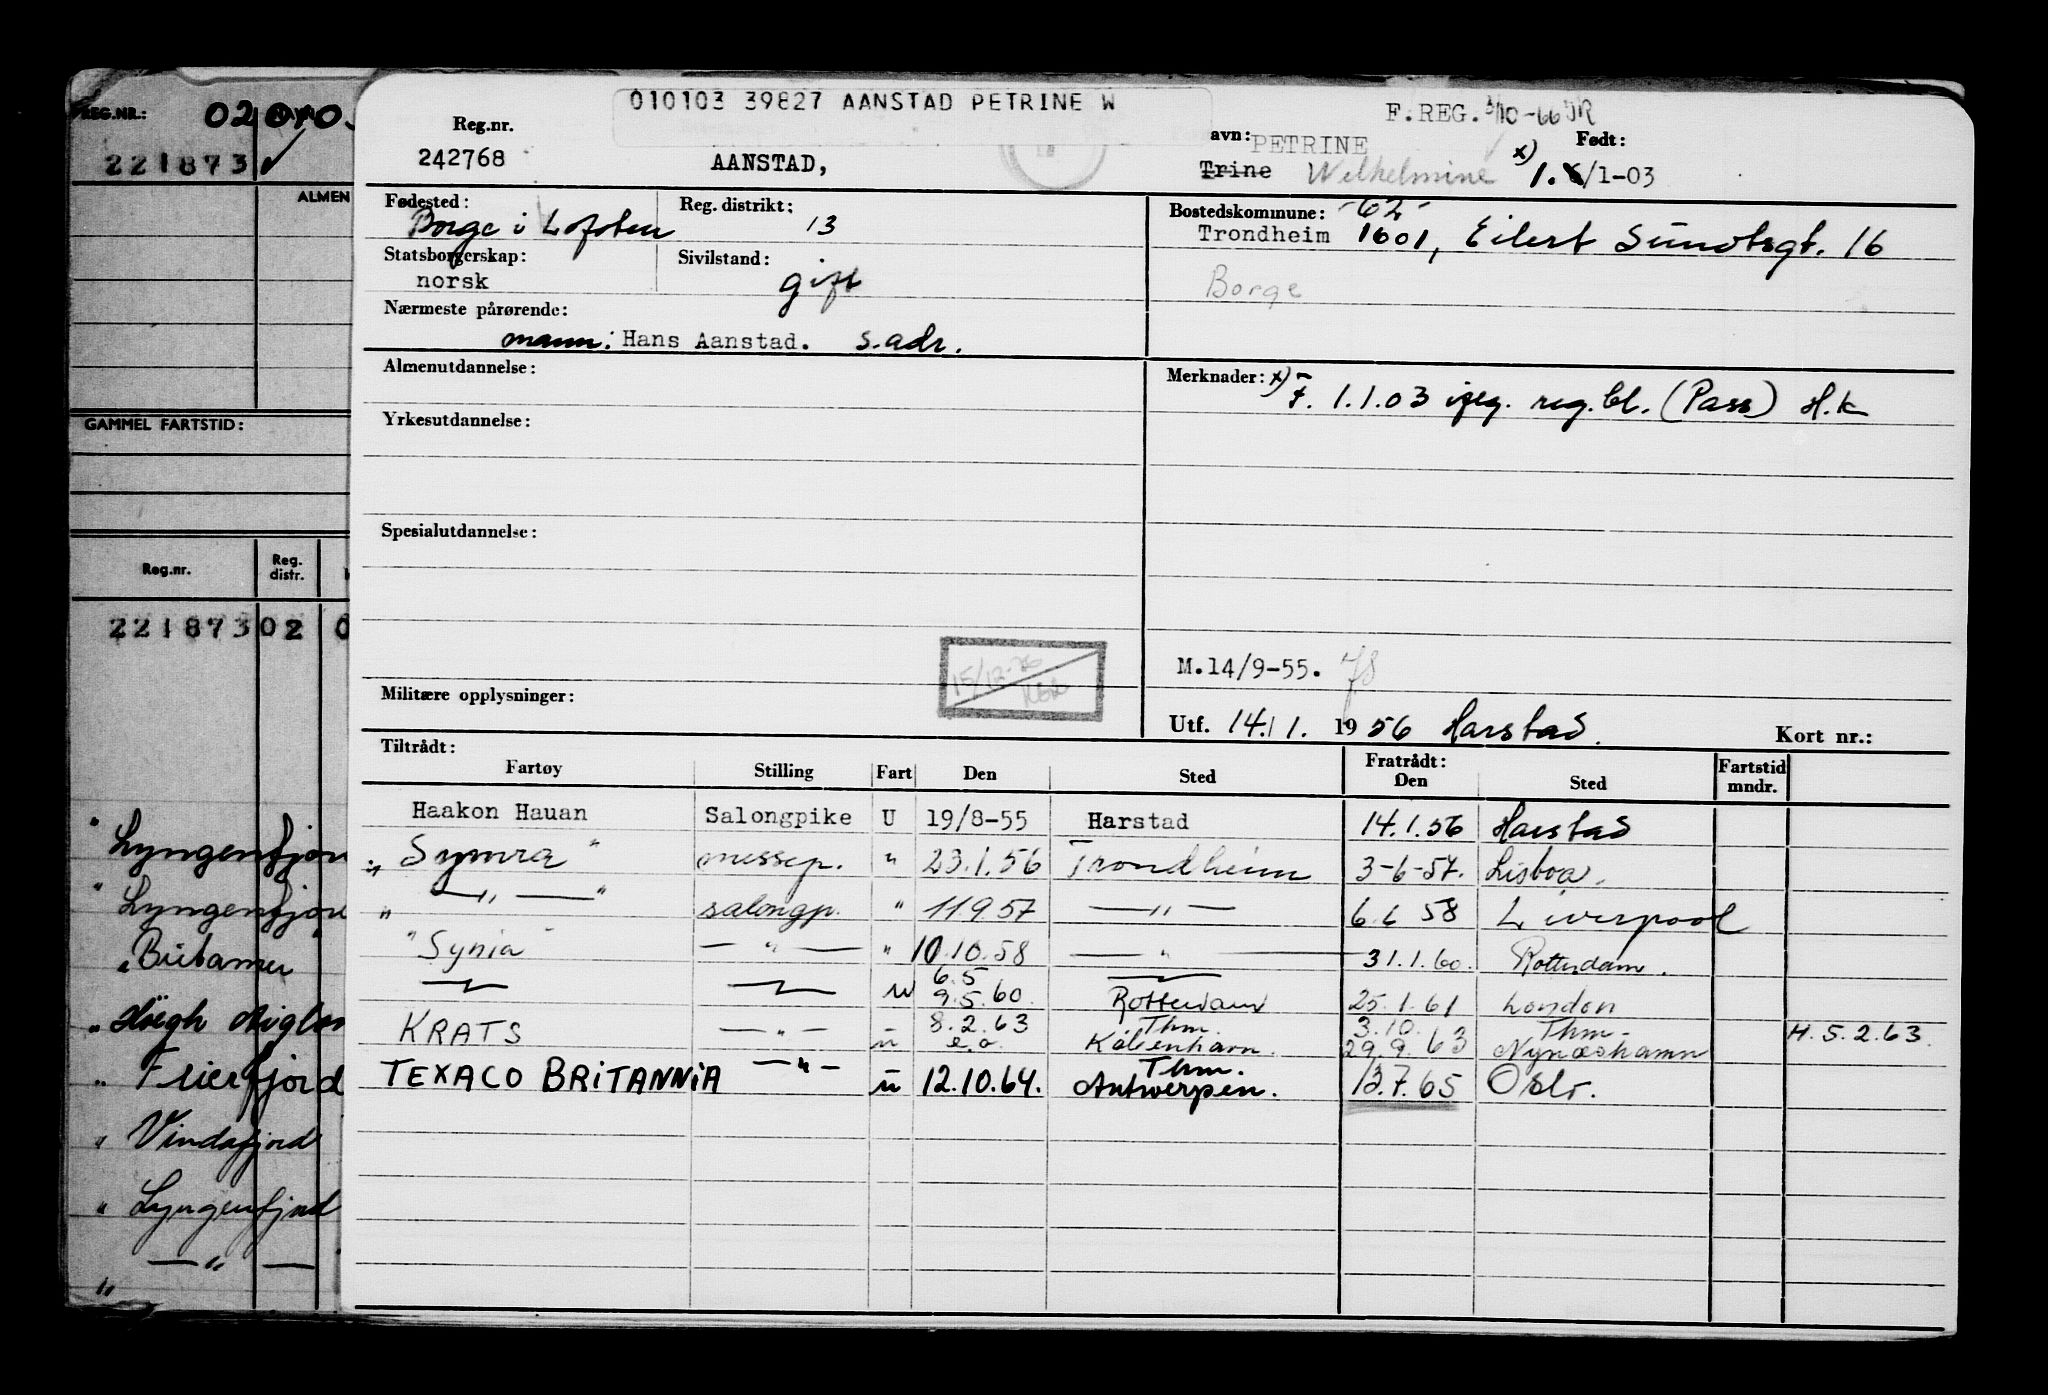 REG.NR.:
221873 ✓
ALMEN
GAMMEL FARTSTID:
Reg.nr. Reg. distr.
221873 02 0
" Lyngenfjord
" Lyngenfjord
" Britamer "
" Høegh
" Freierfjord
" Vindafjord
" Lyngenfjord
— " —
"
010103 39827 AANSTAD PETRINE W
F.REG. 3/10-66 JR
Reg.nr. avn: PETRINE Født:
242768 AANSTAD, Trine Wilhelmine x) 1. /1-03
Fødested: Reg. distrikt: Bostedskommune: -62-
Borge i Lofoten 13 Trondheim 1601, Eilert Sundtsgt. 16
Statsborgerskap: Sivilstand:
norsk gift Borge
Nærmeste pårørende:
mann: Hans Aanstad. s.adr.
Almenutdannelse: Merknader: x)
F. 1.1.03 ifg. reg.bl. (Pass) H.k
Yrkesutdannelse:
Spesialutdannelse:
15/12-76
M.14/9-55.
Militære opplysninger:
Utf. 14/1. 1956 Harstad. Kort nr.:
Tiltrådt: Fratrådt: Fartstid
Fartøy Stilling Fart Den Sted Den Sted mndr.
Haakon Hauan Salongpike U 19/8-55 Harstad 14.1.56 Harstad
" Symra " messep. " 23.1.56 Trondheim 3-6-57. Lisboa.
" — " — " salongp. " 11 9 57 — " — 6. 6 58 Liverpool
" Synia " — " — " 10.10.58 — " — 31.1.60. Rotterdam.
— " — — " — u 6.5 9.5.60. Rotterdam 25.1.61 London
KRATS — " — u 8.2.63 e.o. Thm. København. 3.10. 29.9.63 Thm. Nynäshamn H.5.2.63.
TEXACO BRITANNIA — " — u 12.10.64. Thm. Antwerpen. 13.7.65 Oslo.